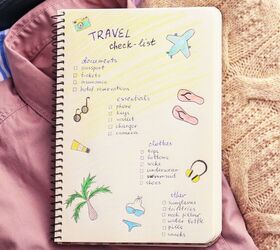 TRAVEL
check-list
documents
passport
tickets
insurance
hotel reservations
essentials
phone
keys
wallet
charger
camera
clothes
tops
bottoms
socks
underwear
swimsuit
shoes
other
sunglasses
toiletries
neck pillow
water bottle
pills
snacks